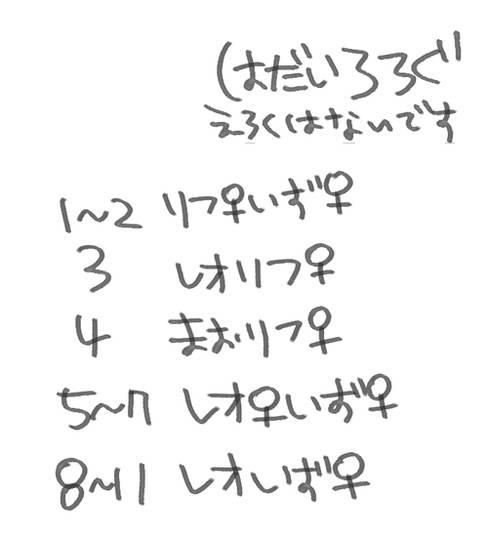 はだいろろぐ
えろくはないです
1~2 リフ♀いず♀
3 レオリフ♀
4 まおリフ♀
5~7 レオ♀いず♀
8~11 レオいず♀